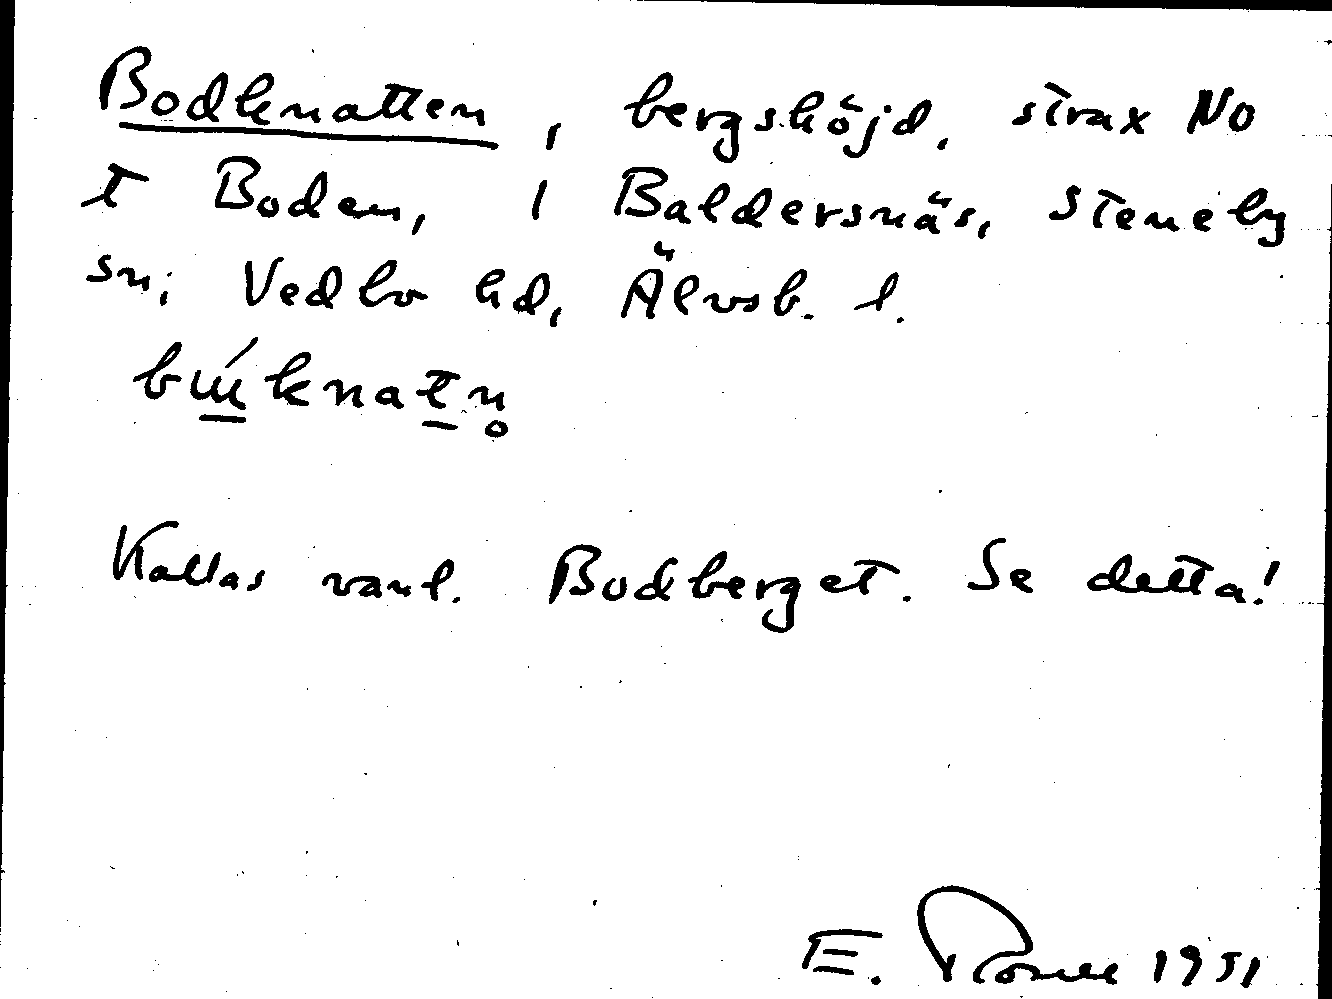 Bodknatten, bergshöjd, strax NO
t Boden, i Baldersnäs, Steneby
sn, Vedbo hd, Älvsb. l.
Kallas vanl. Bodberget. Se detta!
E. 1951